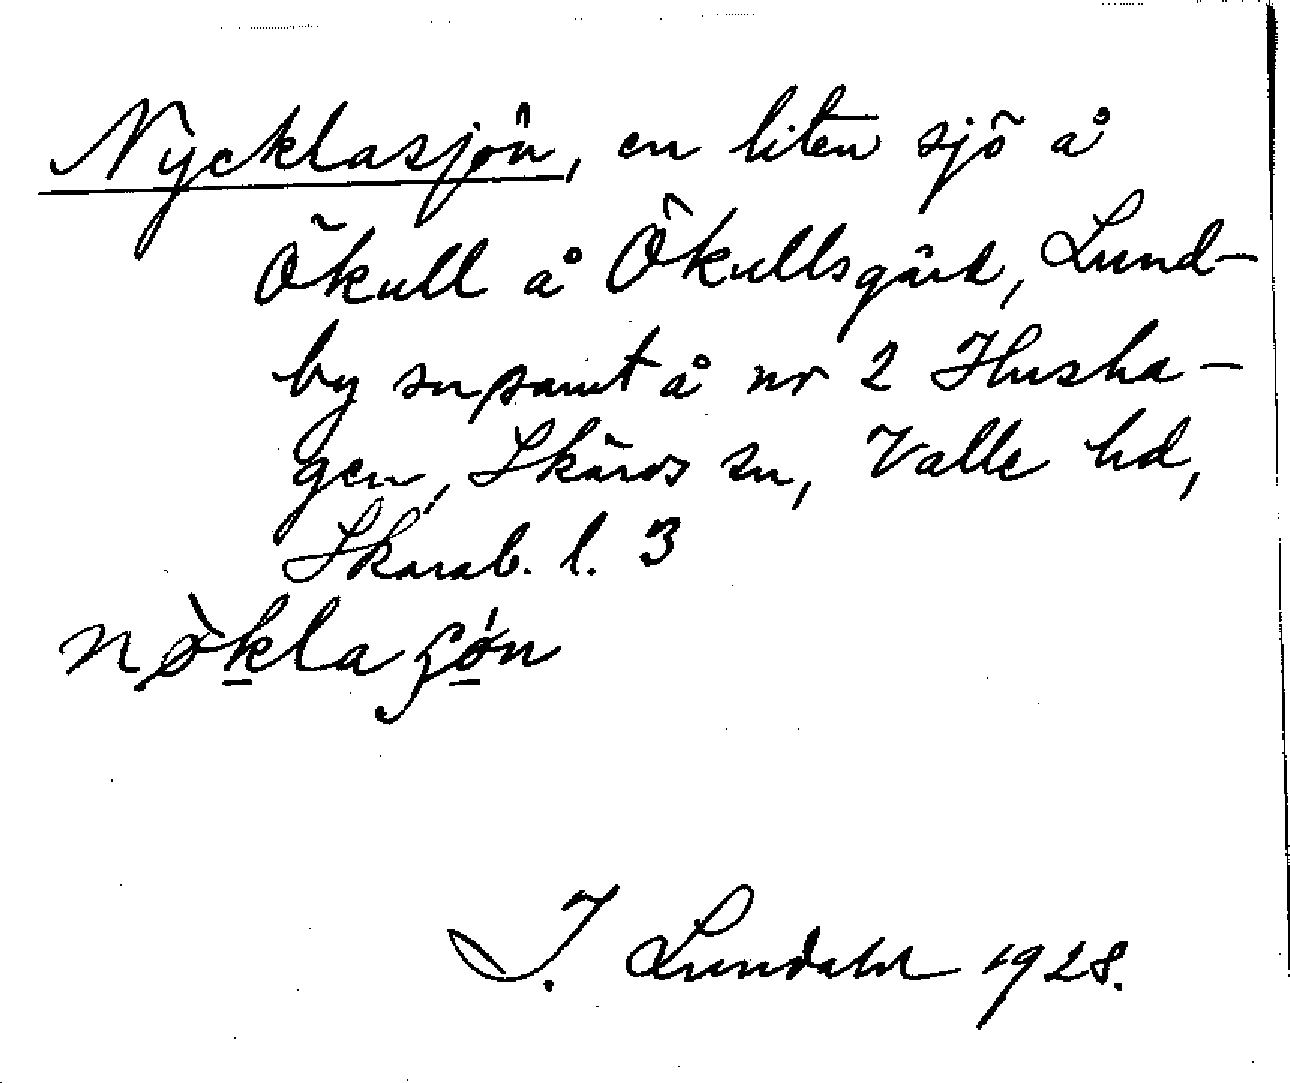 Nycklasjön, en liten sjö å
Ökull å Ökullsgård, Lund-
by sn samt å nr 2 Husha-
gen, Skärvs sn, Valle hd,
Skarab. l. 3
nø̀klaʃǿn
I. Lundahl 1928.